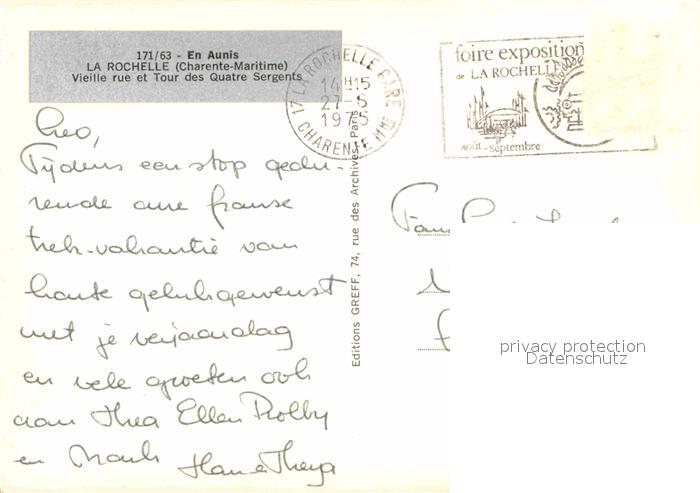 171/63 - En Aunis
LA ROCHELLE (Charente-Maritime)
Vieille rue et Tour des Quatre Sergents
17 LA ROCHELLE GARE
14H15
27-8
1975
CHARENTE MME
foire exposition
de LA ROCHELLE
Août - septembre
Editions GREFF, 74, rue des Archives, Paris
Tijdens een stop gedu-
rende onze franse
trek-vakantie van
harte gelukgewenst
met je verjaardag
en vele groeten ook
aan Thea Ellen Robby
en Mark Han & Thea
Fam
privacy protection
Datenschutz